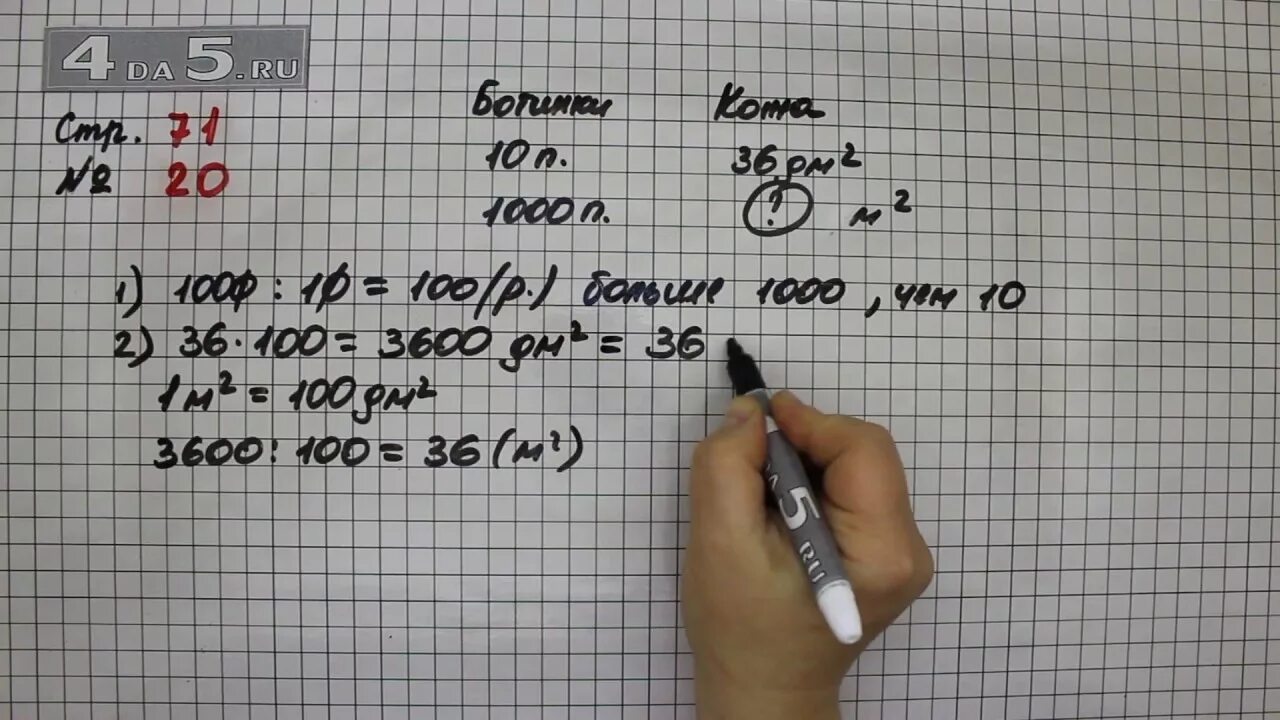 4DA5.RU
Стр. 71
№ 20
Ботинки Кожа
10 п. 36 дм²
1000 п. ? м²
1) 1000 : 10 = 100 (р.) больше 1000, чем 10
2) 36 · 100 = 3600 дм² = 36
1 м² = 100 дм²
3600 : 100 = 36 (м²)
5
RU